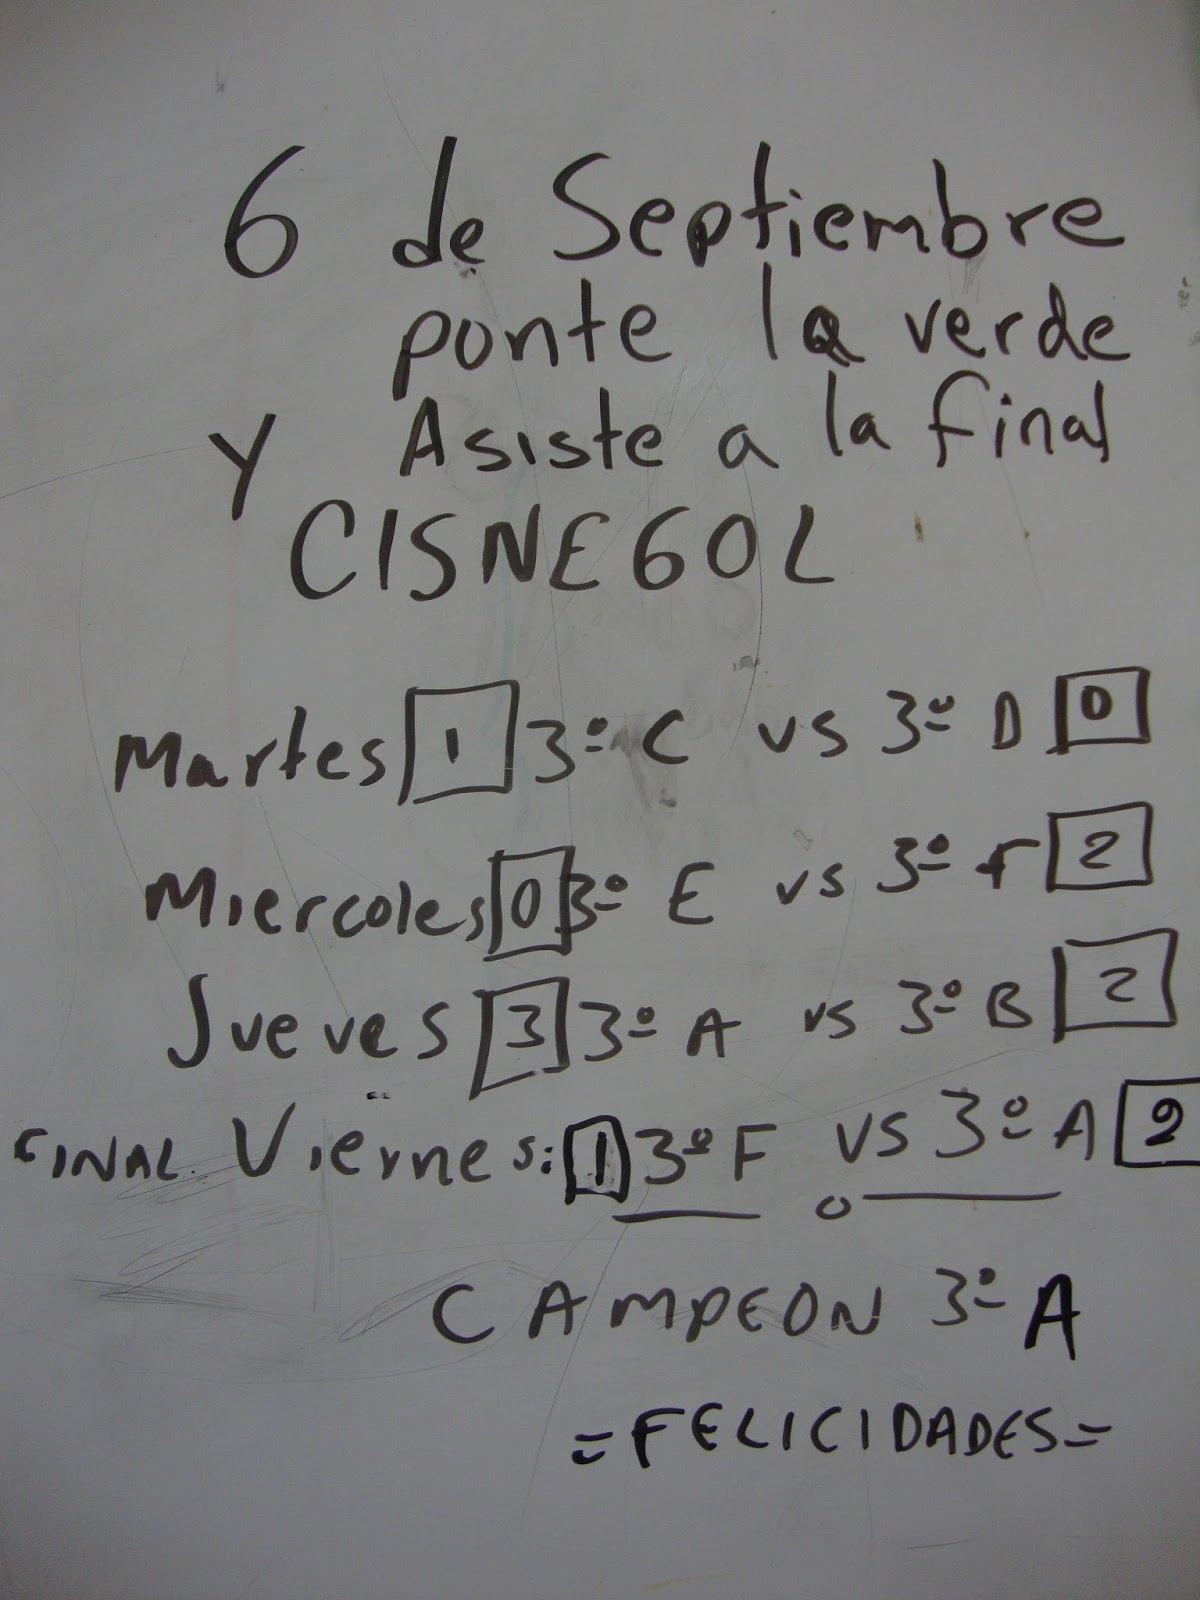 6 de Septiembre
ponte la verde
Y Asiste a la final
CISNEGOL
Martes 1 3º C vs 3º D 0
Miercoles 0 3º E vs 3º F 2
Jueves 3 3º A vs 3º B 2
FINAL. Viernes: 1 3º F vs 3º A 2
CAMPEON 3º A
=FELICIDADES=